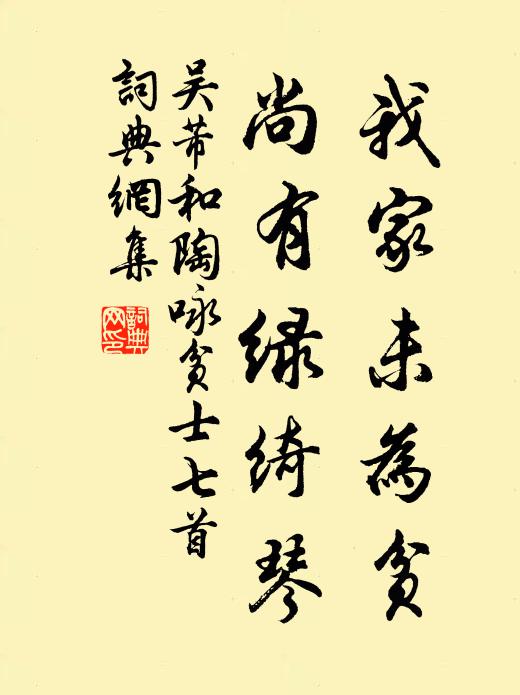 我家未為貧
尚有綠綺琴
吴芾和陶咏貧士七首
詞典網集
詞典网印